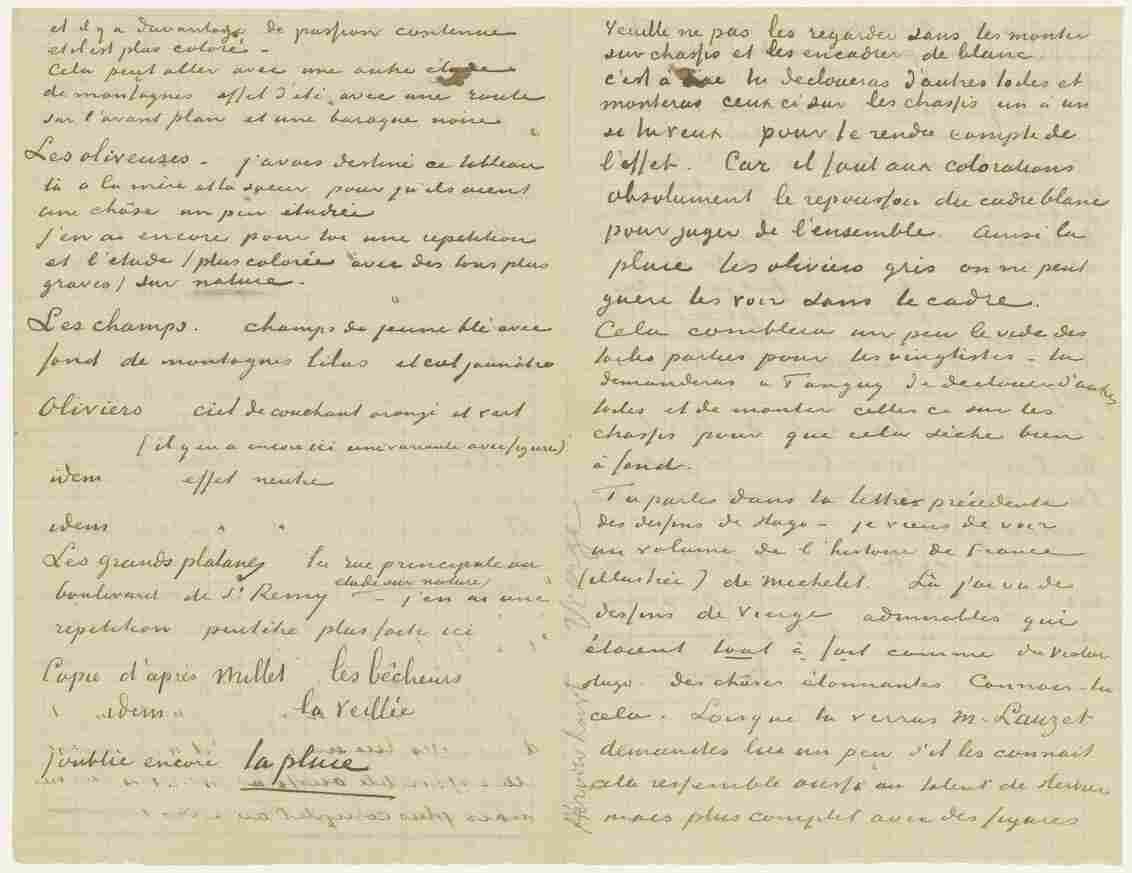 et il y a davantage de passion contenue
et il est plus coloré –
Cela peut aller avec une autre étude
de montagnes effet d'été avec une route
sur l'avant plan et une baraque noire
Les oliveuses – j'avais destiné ce tableau
là à la mère et la soeur pour qu'ils aient
une chôse un peu étudiée
j'en ai encore pour toi une repetition
et l'étude (plus colorée avec des tons plus
graves) sur nature.
Les champs. champs de jeune blé avec
fond de montagnes lilas et ciel jaunâtre
Oliviers ciel de couchant orangé et vert
(il y en a encore ici une variante avec figures)
idem effet neutre
idem " "
Les grands platanes la rue principale ou
boulevard de St Remy étude sur nature – j'en ai une
repetition peutêtre plus faite ici
Copie d'après Millet les bêcheurs
" idem " la veillée
J'oublie encore la pluie
Veuille ne pas les regarder sans les monter
sur chassis et les encadrer de blanc.
c'est à dire tu decloueras d'autres toiles et
monteras ceux ci sur les chassis un à un
si tu veux pour te rendre compte de
l'effet. Car il faut aux colorations
absolument le repoussoir du cadre blanc
pour juger de l'ensemble. Ainsi la
pluie les oliviers gris on ne peut
guère les voir sans le cadre.
Cela comblera un peu le vide des
toiles parties pour les vingtistes – tu
demanderas à Tanguy de declouer d'autres
toiles et de monter celles ci sur les
chassis pour que cela sèche bien
à fond.
Tu parles dans ta lettre précédente
des dessins de Hugo – je viens de voir
un volume de l'histoire de France
(illustrée) de Michelet. Là j'ai vu de
dessins de Vierge admirables qui
étaient tout à fait comme du Victor
Hugo. des chôses étonnantes Connais-tu
cela. Lorsque tu verras M. Lauzet
demandes lui un peu s'il les connait
cela ressemble aussi au talent de Hervier
mais plus complet avec des figures